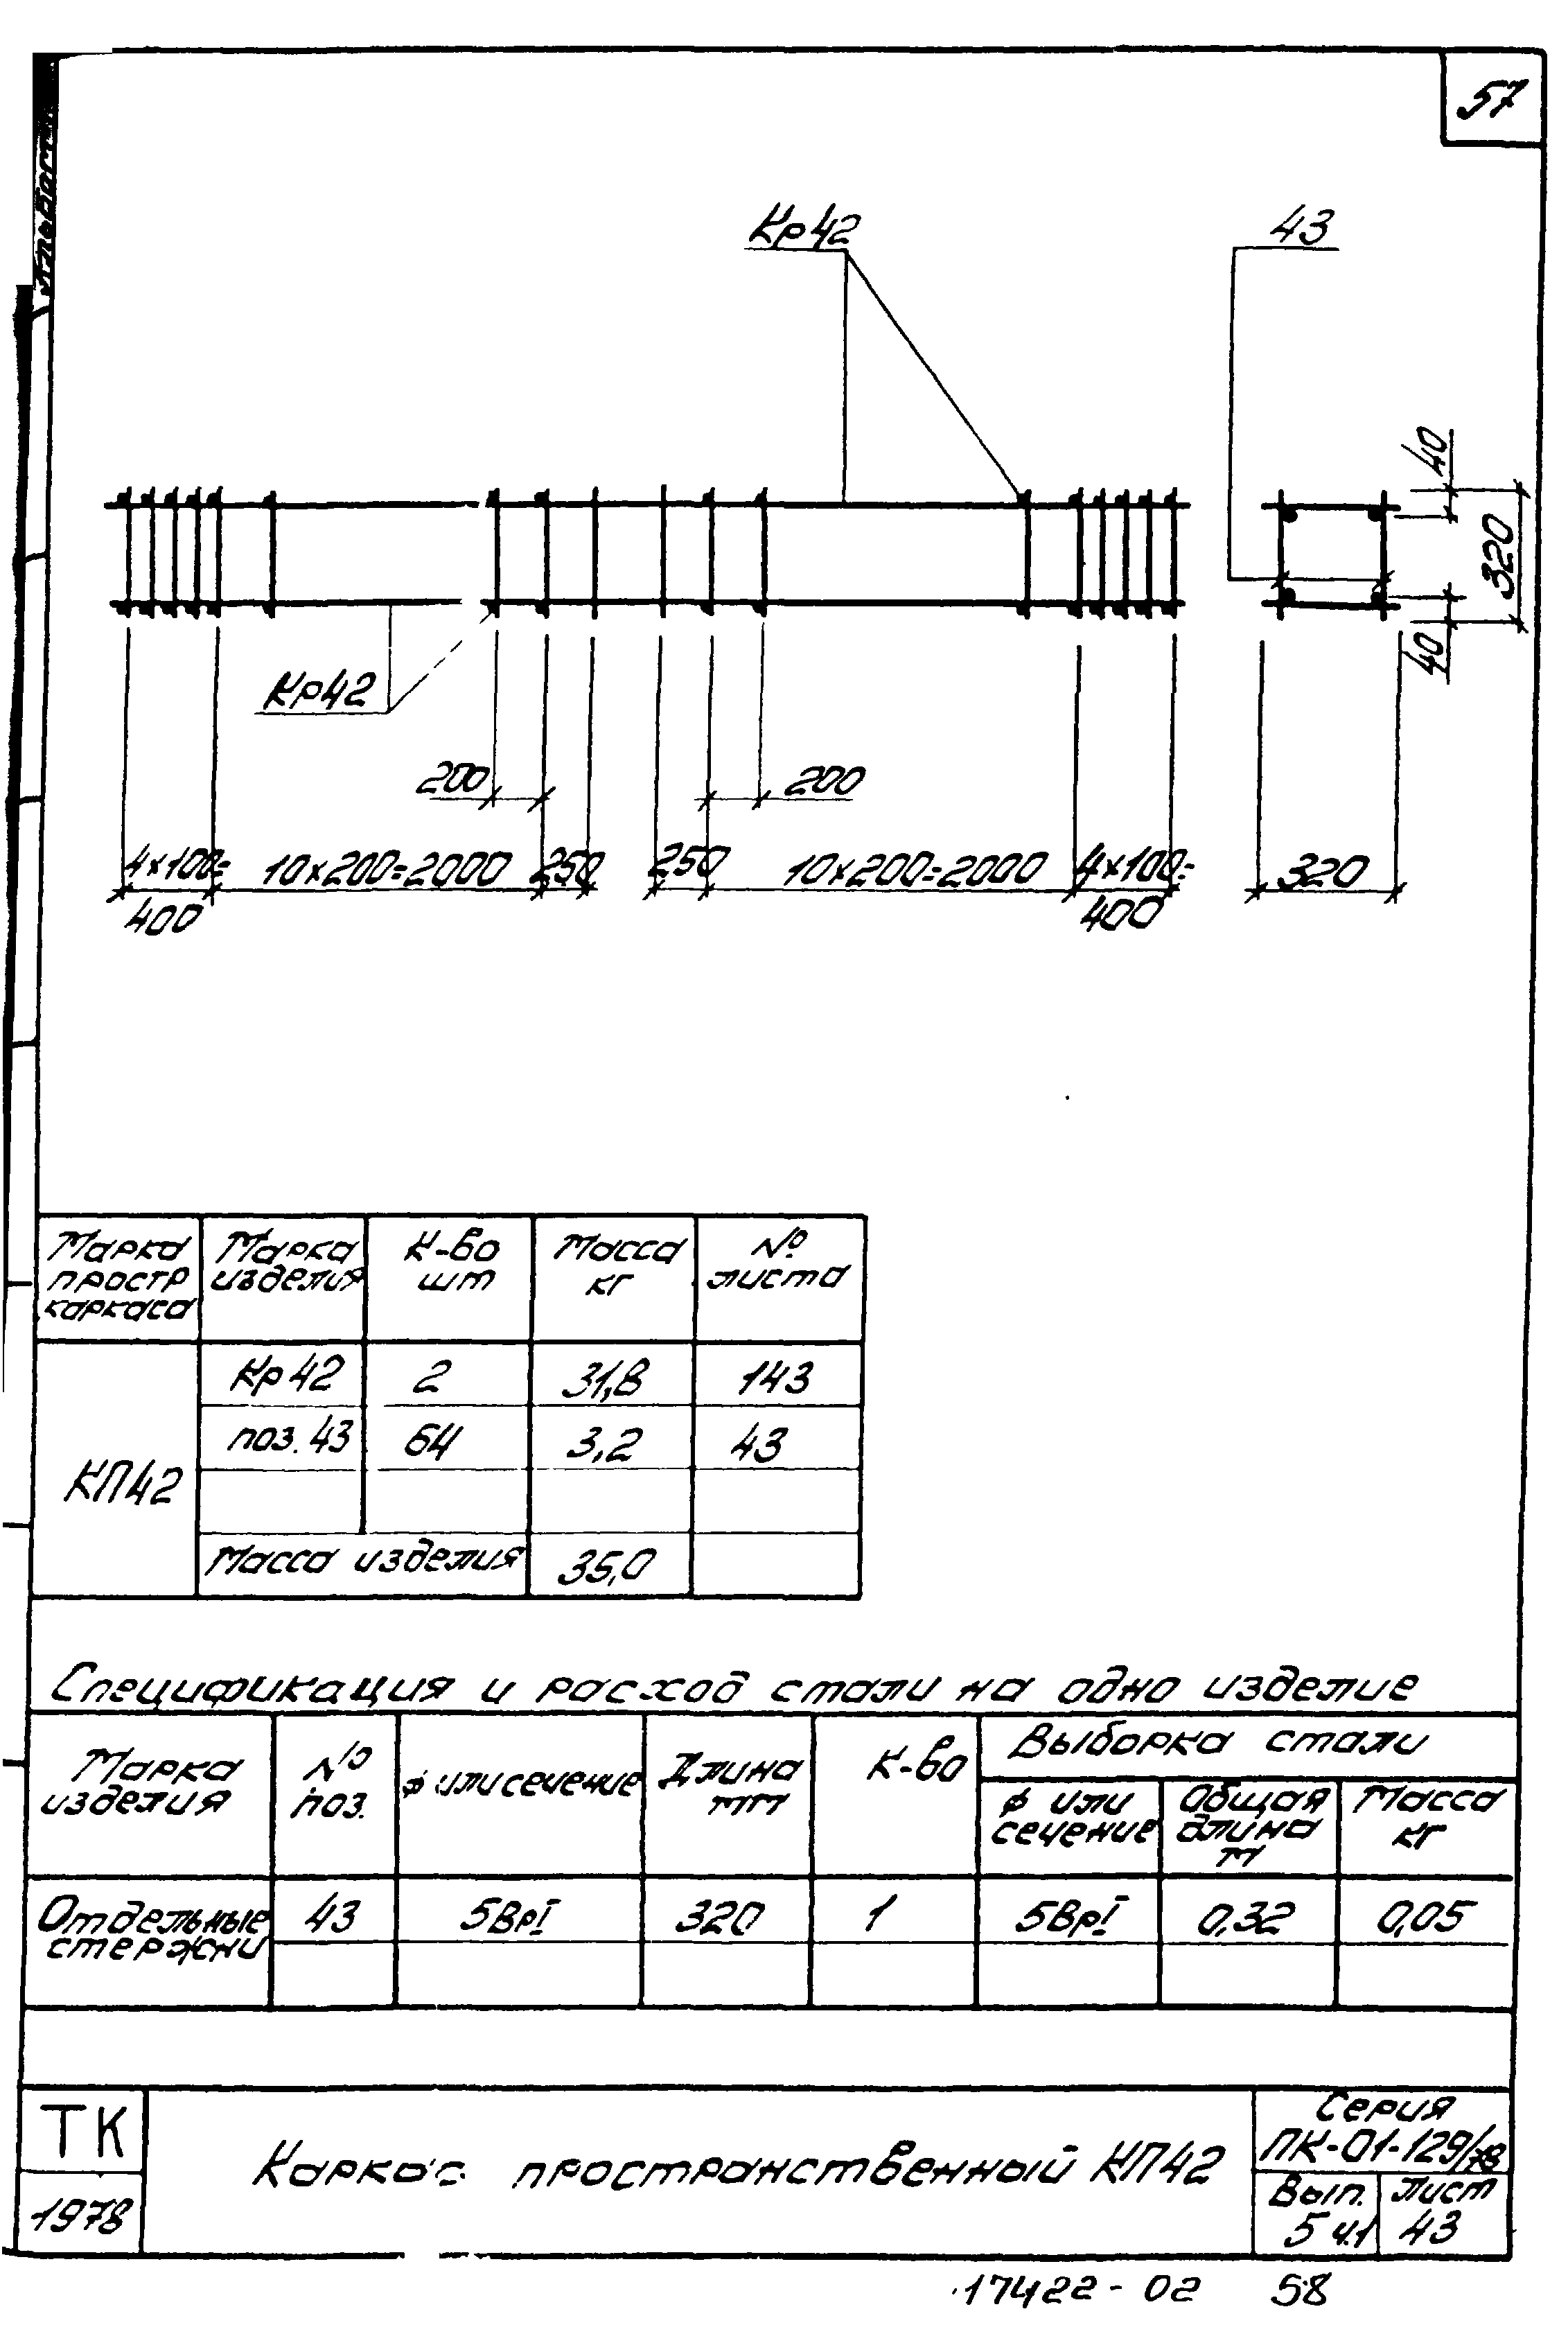 57
Альбом
Кр42
43
40
320
40
Кр42
200
200
4х100=
400
10х200=2000
250
250
10х200=2000
4х100=
400
320
Марка простр каркаса
Марка изделия
К-во шт
Масса кг
№ листа
КП42
Кр42 2 31,8 143
поз.43 64 3,2 43
Масса изделия 35,0
Спецификация и расход стали на одно изделие
Марка изделия
№ поз.
ϕ или сечение
Длина мм
К-во
Выборка стали
ϕ или сечение
Общая длина м
Масса кг
Отдельные стержни
43 5ВрI 320 1 5ВрI 0,32 0,05
ТК
1978
Каркас пространственный КП42
Серия
ПК-01-129/78
Вып.
5 ч.1
Лист
43
17422-02 58